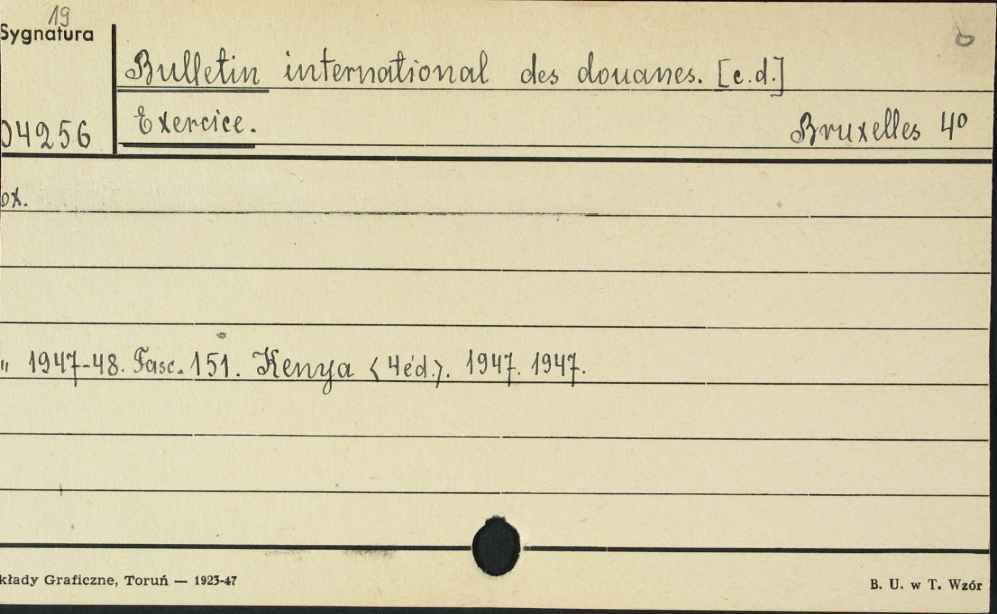 19
Sygnatura
04256
Bulletin international des douanes. [c.d.]
Exercice.
Bruxelles 4⁰
ox.
„ 1947-48. Fasc. 151. Kenya <4éd.>. 1947. 1947.
kłady Graficzne, Toruń — 1923-47
B. U. w T. Wzór